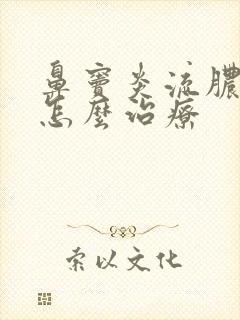 鼻窦炎流膿
怎麼治療
索以文化